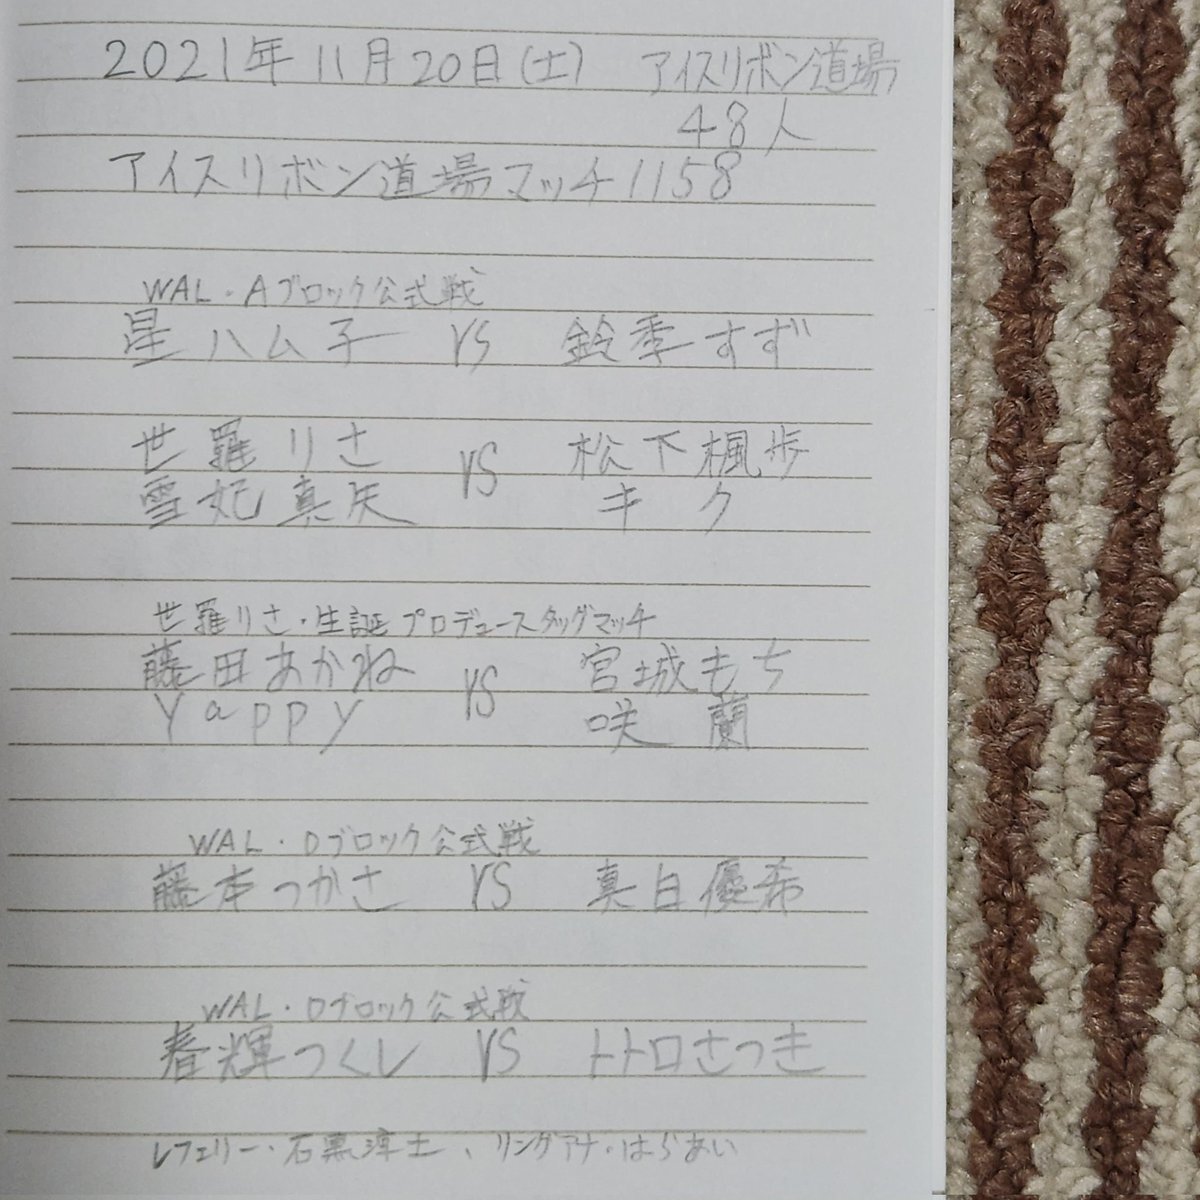 2021年11月20日(土) アイスリボン道場
48人
アイスリボン道場マッチ1158
WAL・Aブロック公式戦
星ハム子 VS 鈴季すず
世羅りさ VS 松下楓歩
雪妃真矢 キク
世羅りさ・生誕プロデュースタッグマッチ
藤田あかね VS 宮城もち
Yappy 咲蘭
WAL・Dブロック公式戦
藤本つかさ VS 真白優希
WAL・Dブロック公式戦
春輝つくし VS トトロさつき
レフェリー・石黒淳士、リングアナ・はらあい